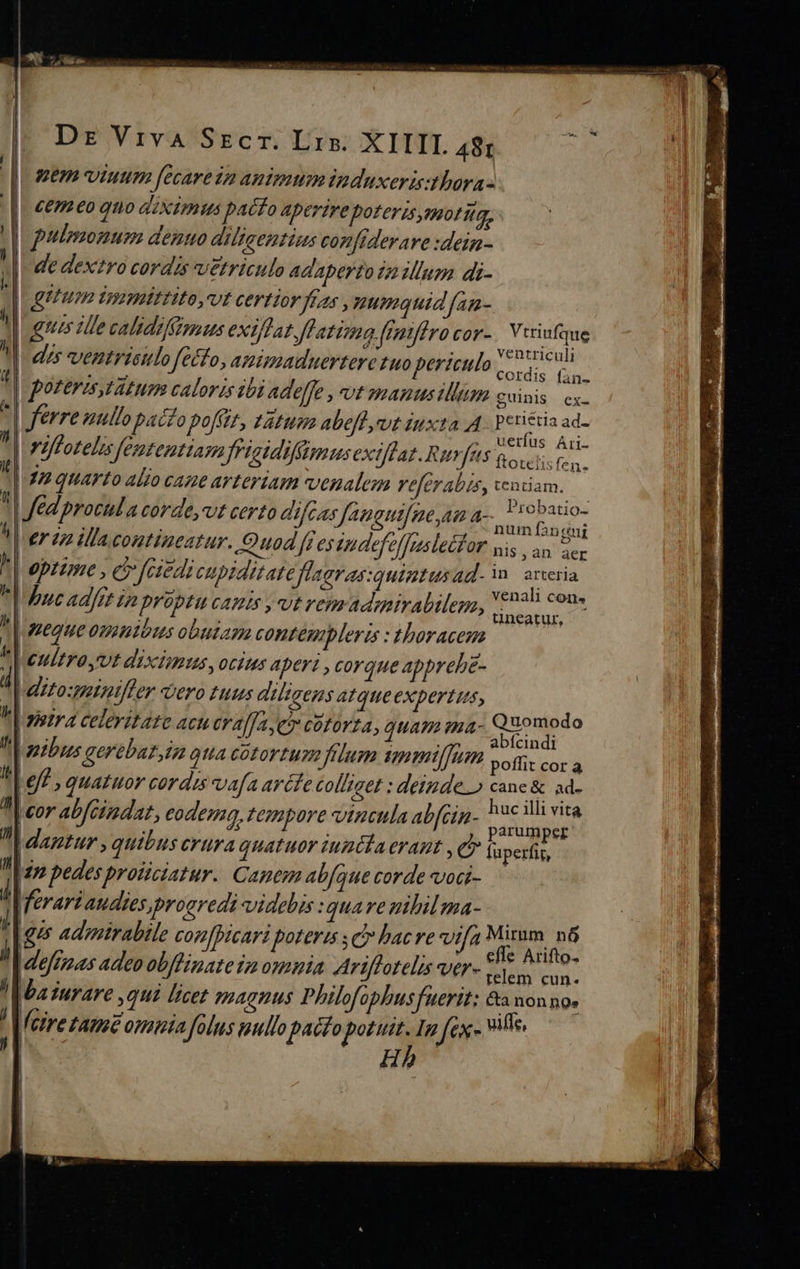 De Viva Sect. Lib. XIIII. 481
nem viuum ſecare in animum induxeris:thora-
cem eo quo diximus pacto aperire poteris, motuq;
pulmonum denuo diligentius conſiderare: dein-
de dextro cordis vẽtriculo adaperto in illum di-
gitum immittito, vt certior fias, numquid ſan-
guis ille calidiſsimus exiſtat, ſtatimq. ſiniſtro cor-
dis ventriculo ſecto, animaduertere tuo periculo
poteris, tãtum caloris ibi adeſſe, vt manus illum
ferre nullo pacto poſsit, tãtum abeſt, vt iuxta A-
riſtotelis ſententiam frigidiſsimus exiſtat. Rurſus
in quarto alio cane arteriam venalem referabis,
ſed procul a corde, vt certo diſcas ſanguiſne, an a-
er in illa contineatur. Quod ſi es indefeſſus lector
optime, & ſciẽdi cupiditate flagras: quintus ad-
huc adſit in prõptu canis, vt rem admirabilem,
neque omnibus obuiam contempleris: thoracem
cultro, vt diximus, ocius aperi, corque apprehẽ-
dito: miniſter vero tuus diligens atque expertus,
mira celeritate acu craſſa, & cõtorta, quam ma-
nibus gerebat, in qua cõtortum filum immiſſum
eſt, quatuor cordis vaſa arcte colliget: deinde
cor abſcindat, eodemq. tempore vincula abſcin-
dantur, quibus crura quatuor iuncta erant, &
in pedes proiiciatur. Canem abſque corde voci-
ferari audies, progredi videbis: qua re nihil ma-
gis admirabile conſpicari poteris; & hac re viſa
deſinas adeo obſtinate in omnia Ariſtotelis ver-
ba iurare, qui licet magnus Philoſophus fuerit:
ſcire tamẽ omnia ſolus nullo pacto potuit. In ſex-
Hh
Vtriuſque
ventriculi
cordis ſan-
guinis ex-
periẽtia ad-
uerſus Ari-
ſtotelis ſen-
tentiam.
Probatio-
num ſangui
nis, an aer
in arteria
venali con-
tineatur,
Quomodo
abſcindi
poſſit cor a
cane & ad-
huc illi vita
parumper
ſuperſit,
Mirum nõ
eſſe Ariſto-
telem cun-
cta non no-
uiſſe,